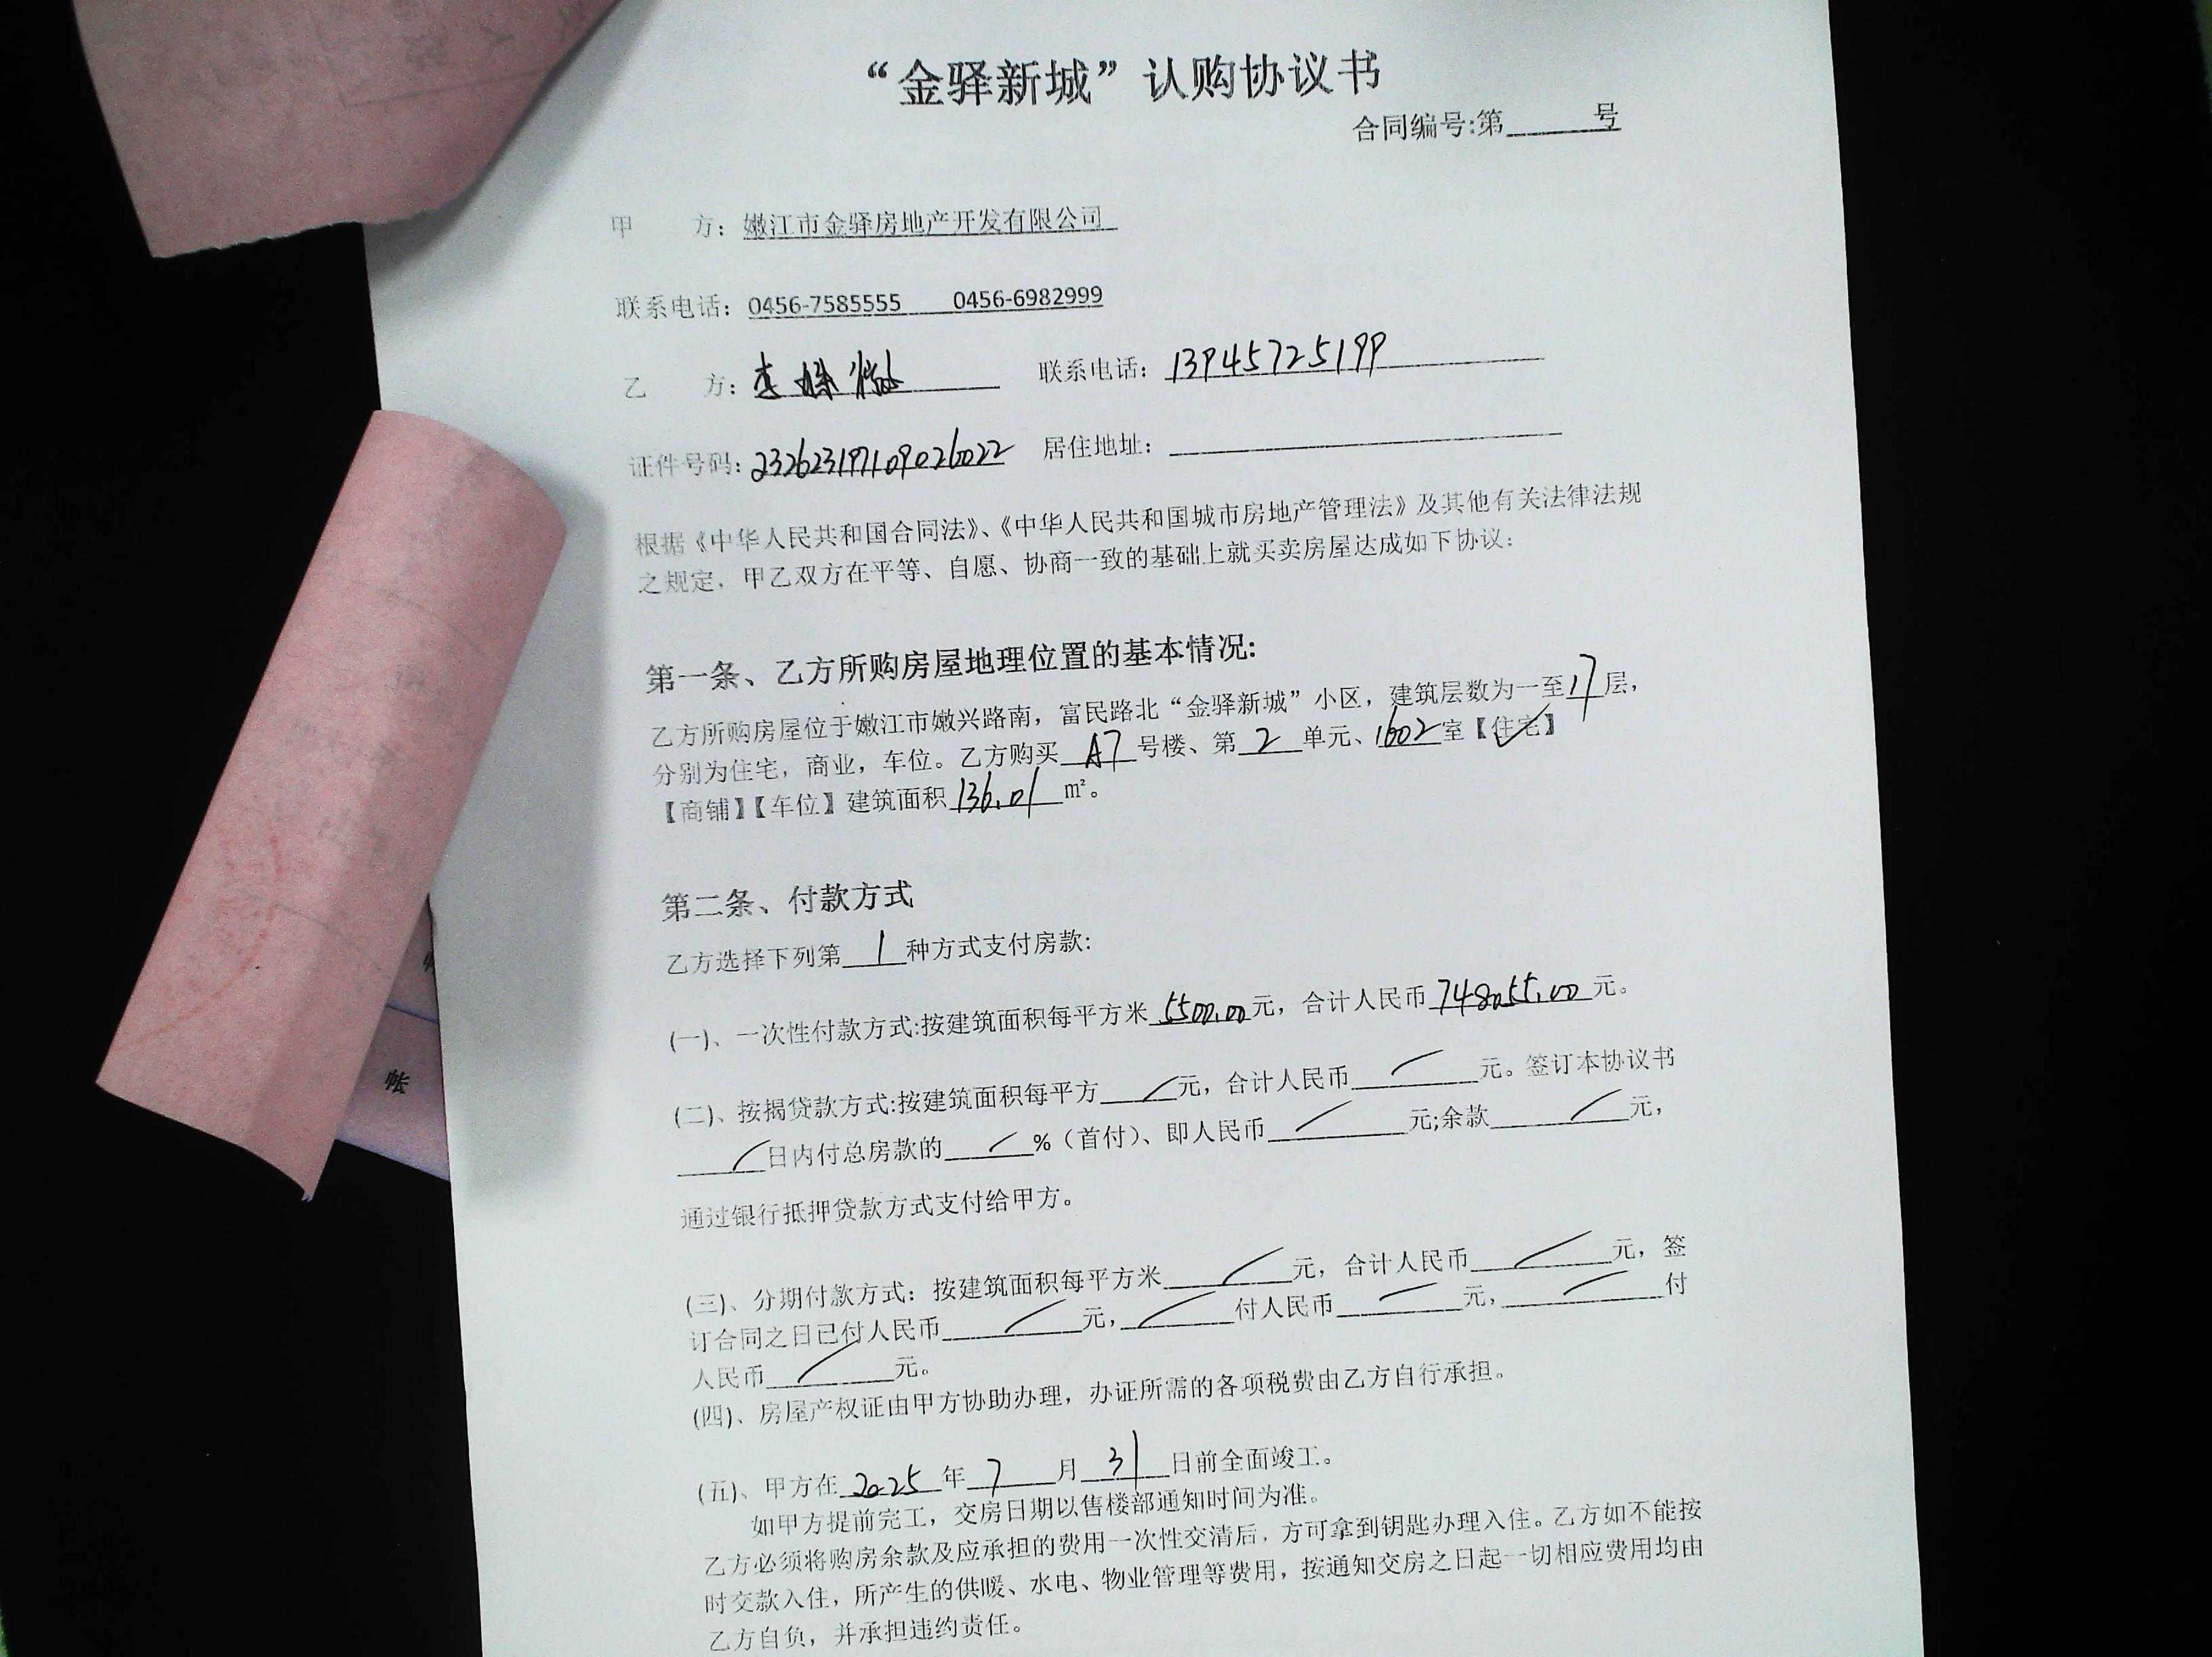 “金驿新城”认购协议书
合同编号:第______号
甲 方：嫩江市金驿房地产开发有限公司
联系电话：0456-7585555 0456-6982999
乙 方： 联系电话：13945725199
证件号码：232623197109026022 居住地址：
根据《中华人民共和国合同法》、《中华人民共和国城市房地产管理法》及其他有关法律法规
之规定，甲乙双方在平等、自愿、协商一致的基础上就买卖房屋达成如下协议：
第一条、乙方所购房屋地理位置的基本情况:
乙方所购房屋位于嫩江市嫩兴路南，富民路北“金驿新城”小区，建筑层数为一至17层，
分别为住宅，商业，车位。乙方购买A7号楼、第2单元、1602室【住宅】✓
【商铺】【车位】建筑面积136.01m²。
第二条、付款方式
乙方选择下列第1种方式支付房款:
(一)、一次性付款方式:按建筑面积每平方米5500.00元，合计人民币748055.00元。
(二)、按揭贷款方式:按建筑面积每平方/元，合计人民币/元。签订本协议书
/日内付总房款的/%（首付）、即人民币/元;余款/元，
通过银行抵押贷款方式支付给甲方。
(三)、分期付款方式：按建筑面积每平方米/元，合计人民币/元，签
订合同之日已付人民币/元，/付人民币/元，/付
人民币/元。
(四)、房屋产权证由甲方协助办理，办证所需的各项税费由乙方自行承担。
(五)、甲方在2025年7月31日前全面竣工。
如甲方提前完工，交房日期以售楼部通知时间为准。
乙方必须将购房余款及应承担的费用一次性交清后，方可拿到钥匙办理入住。乙方如不能按
时交款入住，所产生的供暖、水电、物业管理等费用，按通知交房之日起一切相应费用均由
乙方自负，并承担违约责任。
帐